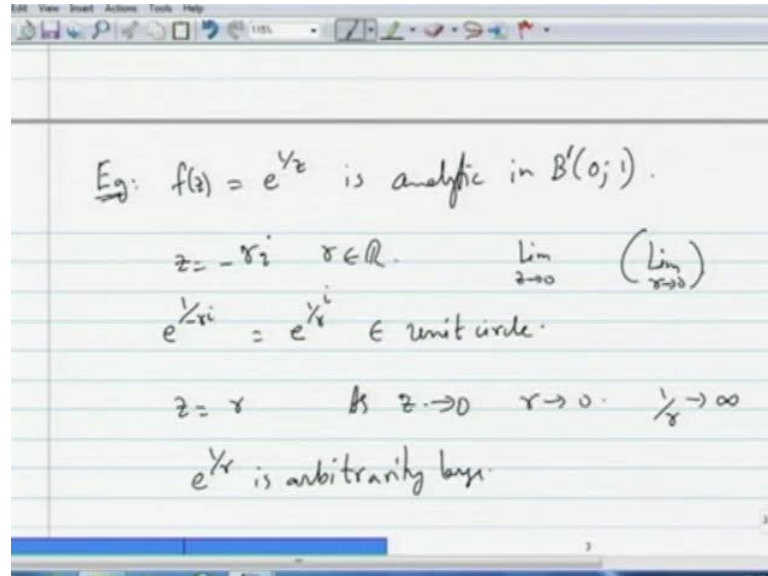 Edit View Insert Actions Tools Help
115%
Eg: f(z) = e^{1/z} is analytic in B'(0; 1).
z = - ri r ∈ ℝ. Lim z→0 (Lim r→0)
e^{1/-ri} = e^{1/r i} ∈ unit circle.
z = r As z → 0 r → 0. 1/r → ∞
e^{1/r} is arbitrarily large.
3